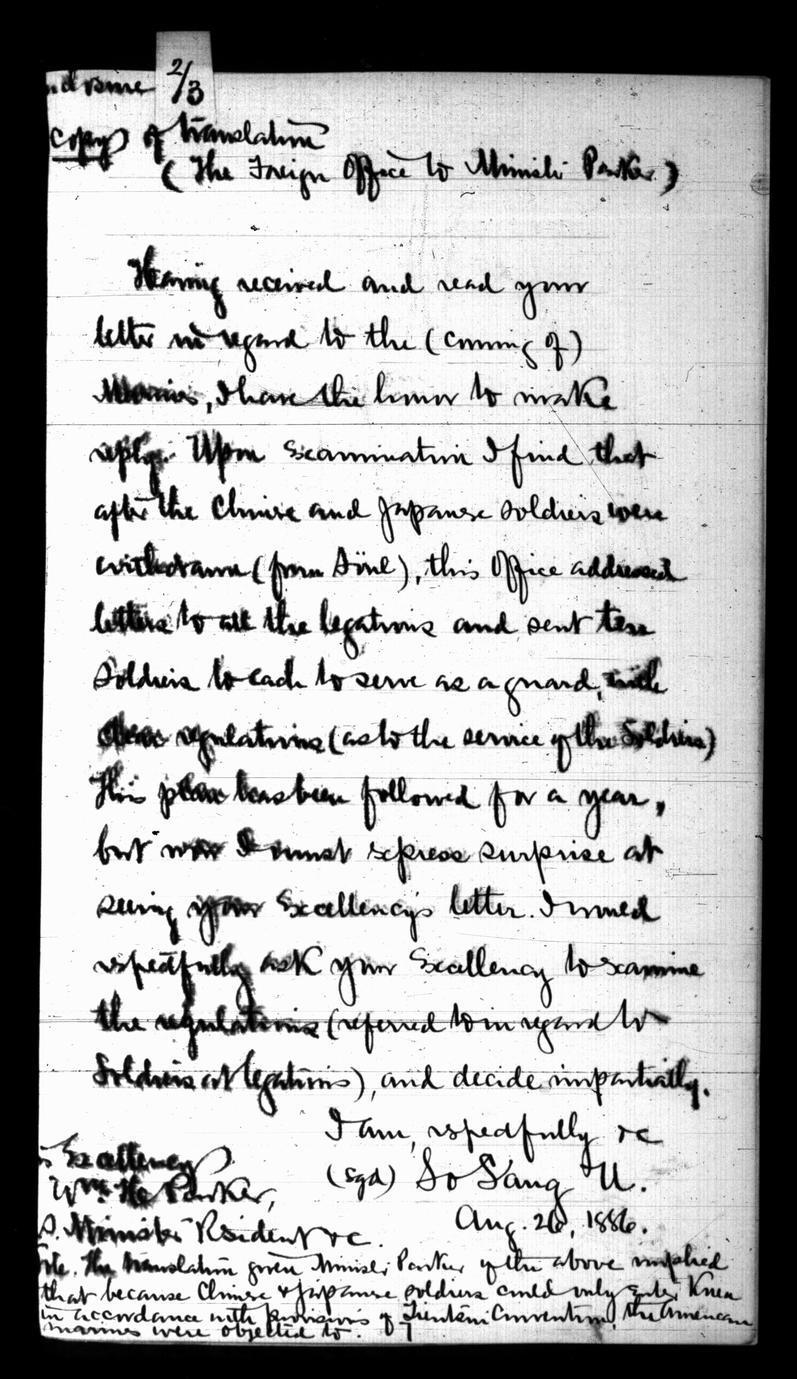 2/3
Copy of translation
(The Foreign Office to Minister Parker.)
Having received and read your
letter in regard to the (coming of)
Marines, I have the honor to make
reply. Upon examination I find that
after the Chinese and Japanese soldiers were
withdrawn (from Söul), this Office addressed
letters to all the legations and sent ten
soldiers to each to serve as a guard, with
clear regulations (as to the service of the Soldiers)
This plan has been followed for a year,
but now I must express surprise at
seeing your Excellency's letter. I would
respectfully ask your Excellency to examine
the regulations (referred to in regard to
Soldiers at legations), and decide impartially.
I am, respectfully &c
(sgd) So Sang U.
Aug. 26, 1886.
Excellency
Wm. H. Parker,
S. Minister Resident &c.
The translation given Minister Parker of the above implied
that because Chinese & Japanese soldiers could only enter Korea
in accordance with provisions of Tientsin Convention, the American
marines were objected to.